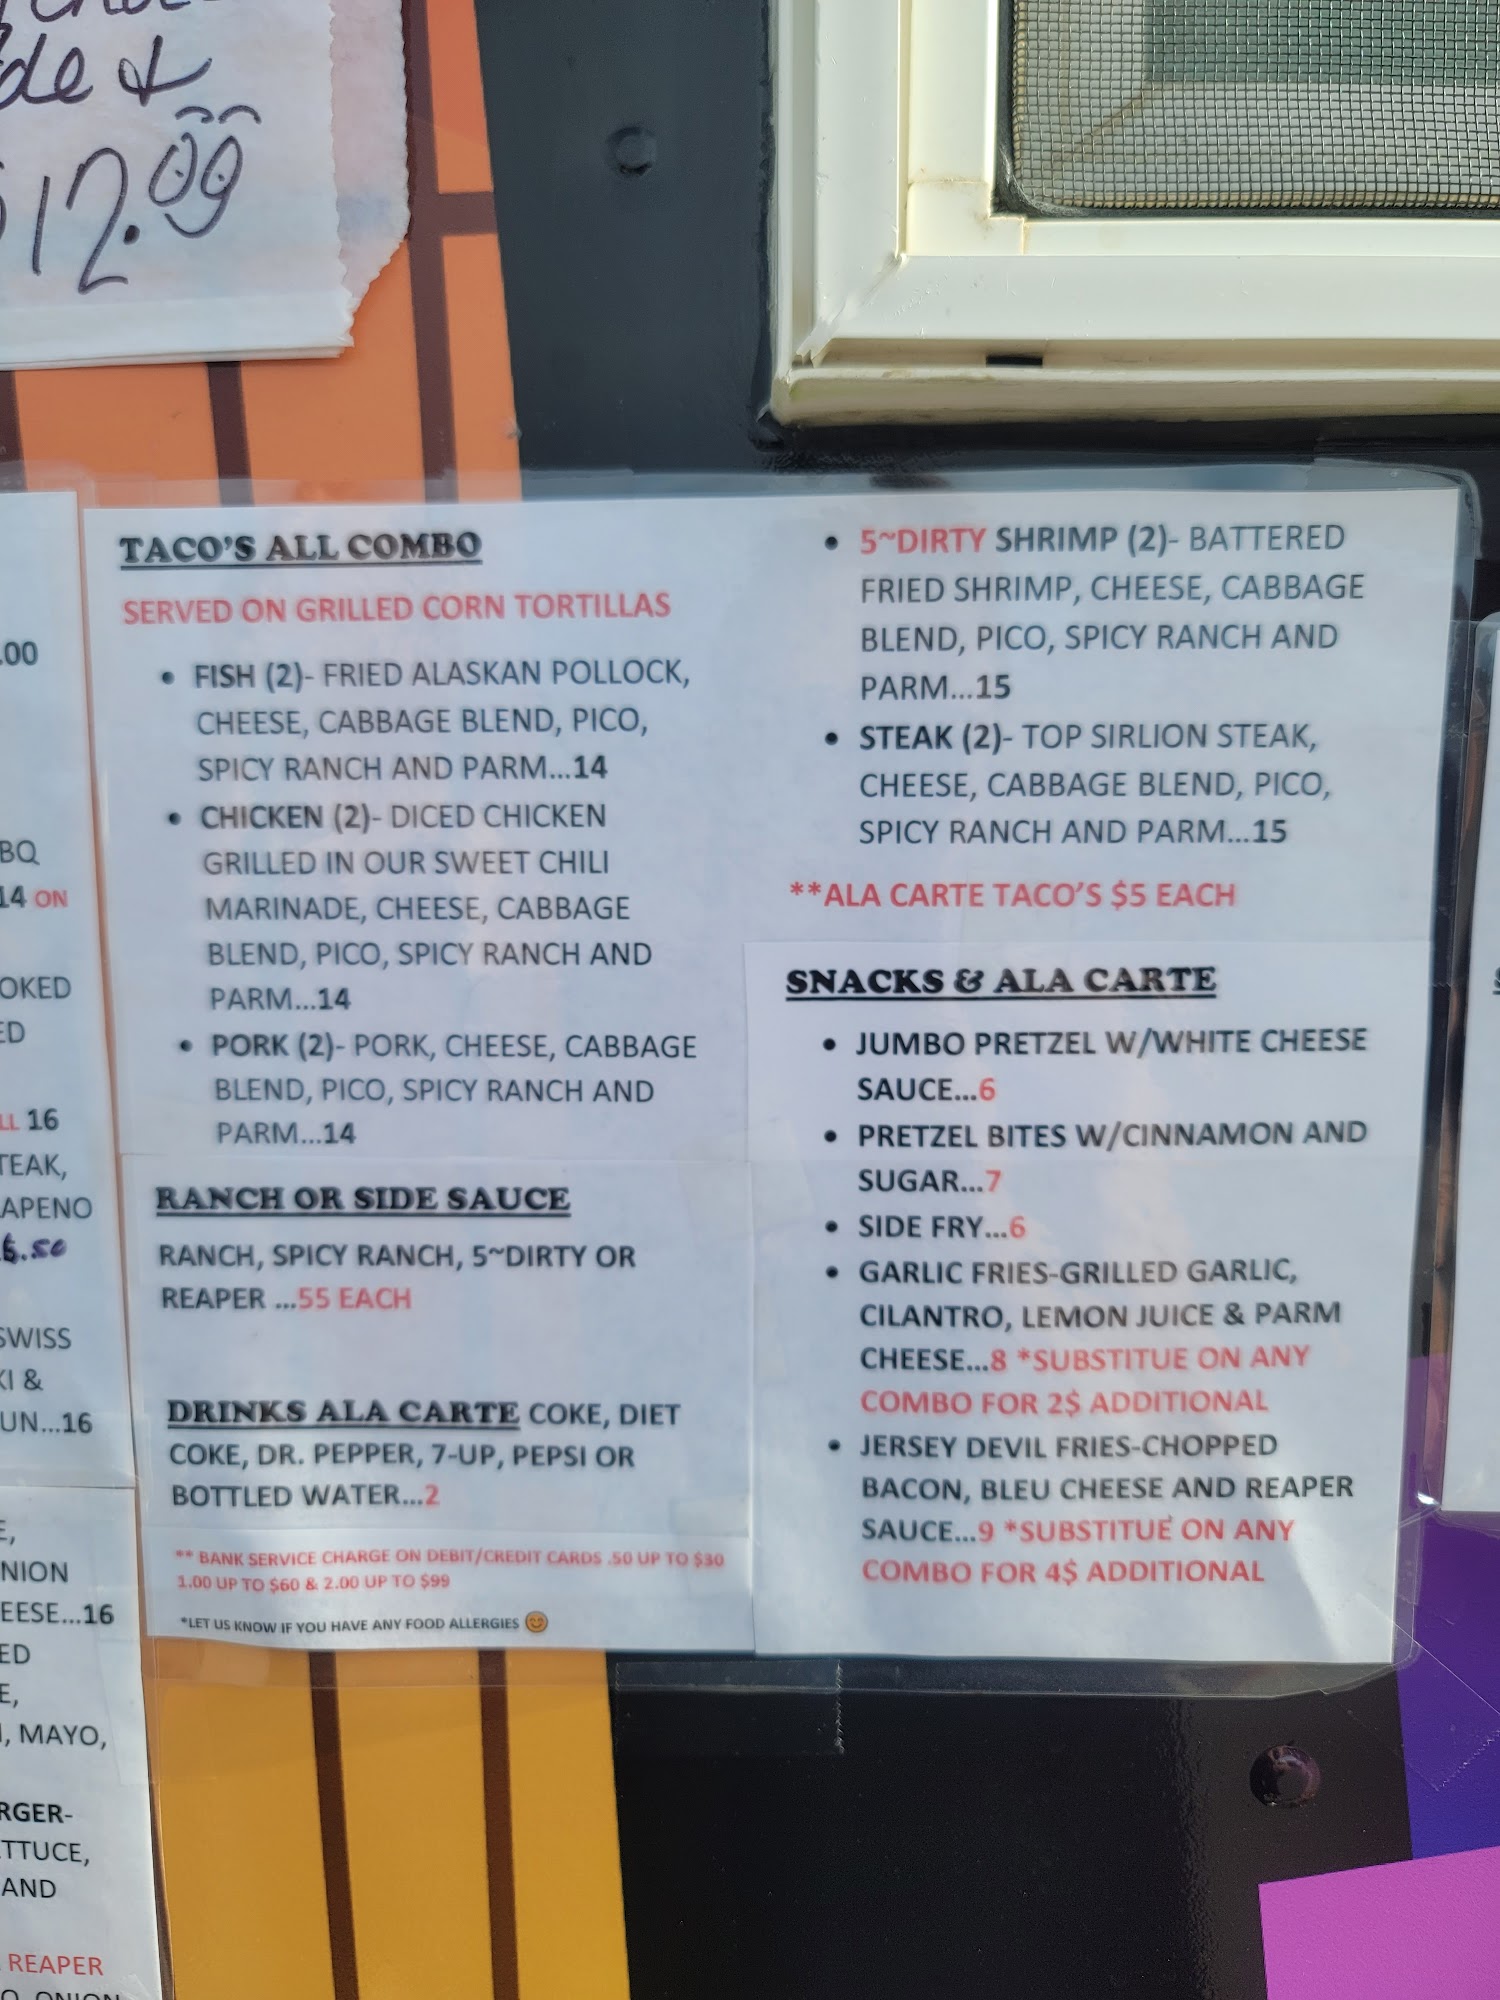 de &
12.00
.00
BQ
14 ON
OKED
ED
LL 16
TEAK,
APENO
6.50
SWISS
KI &
UN...16
E,
NION
EESE...16
ED
E,
, MAYO,
RGER-
TTUCE,
AND
REAPER
O, ONION
TACO'S ALL COMBO
SERVED ON GRILLED CORN TORTILLAS
• FISH (2)- FRIED ALASKAN POLLOCK,
CHEESE, CABBAGE BLEND, PICO,
SPICY RANCH AND PARM...14
• CHICKEN (2)- DICED CHICKEN
GRILLED IN OUR SWEET CHILI
MARINADE, CHEESE, CABBAGE
BLEND, PICO, SPICY RANCH AND
PARM...14
• PORK (2)- PORK, CHEESE, CABBAGE
BLEND, PICO, SPICY RANCH AND
PARM...14
RANCH OR SIDE SAUCE
RANCH, SPICY RANCH, 5~DIRTY OR
REAPER ...55 EACH
DRINKS ALA CARTE COKE, DIET
COKE, DR. PEPPER, 7-UP, PEPSI OR
BOTTLED WATER...2
** BANK SERVICE CHARGE ON DEBIT/CREDIT CARDS .50 UP TO $30
1.00 UP TO $60 & 2.00 UP TO $99
*LET US KNOW IF YOU HAVE ANY FOOD ALLERGIES 😊
• 5~DIRTY SHRIMP (2)- BATTERED
FRIED SHRIMP, CHEESE, CABBAGE
BLEND, PICO, SPICY RANCH AND
PARM...15
• STEAK (2)- TOP SIRLION STEAK,
CHEESE, CABBAGE BLEND, PICO,
SPICY RANCH AND PARM...15
**ALA CARTE TACO'S $5 EACH
SNACKS & ALA CARTE
• JUMBO PRETZEL W/WHITE CHEESE
SAUCE...6
• PRETZEL BITES W/CINNAMON AND
SUGAR...7
• SIDE FRY...6
• GARLIC FRIES-GRILLED GARLIC,
CILANTRO, LEMON JUICE & PARM
CHEESE...8 *SUBSTITUE ON ANY
COMBO FOR 2$ ADDITIONAL
• JERSEY DEVIL FRIES-CHOPPED
BACON, BLEU CHEESE AND REAPER
SAUCE...9 *SUBSTITUE ON ANY
COMBO FOR 4$ ADDITIONAL